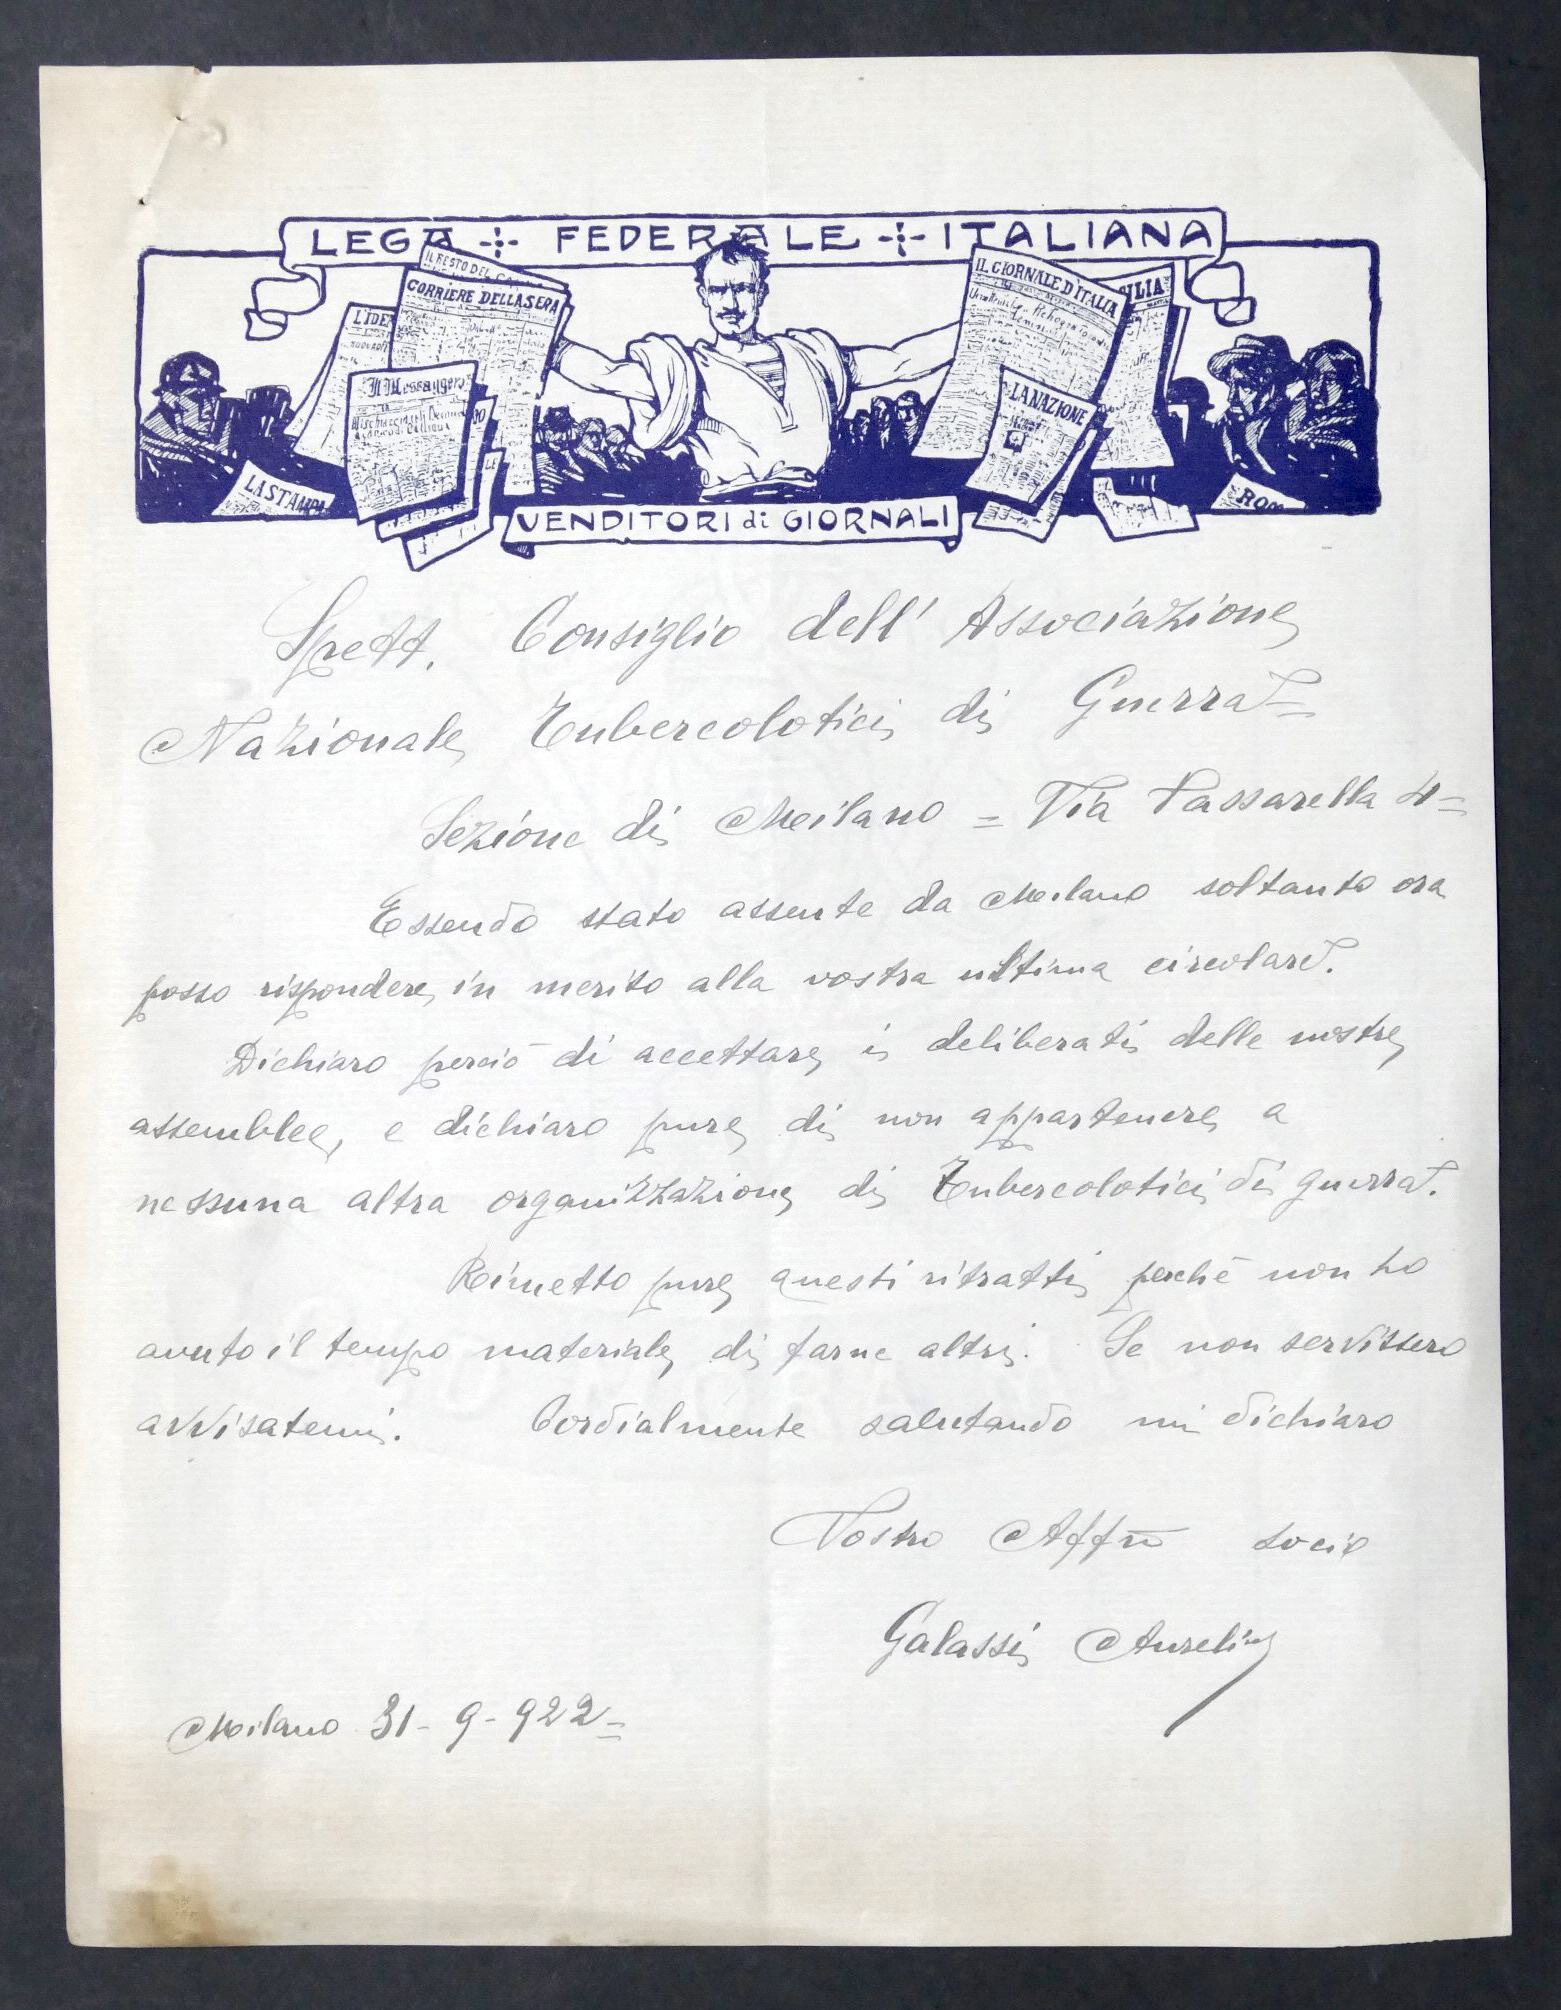 LEGA FEDERALE ITALIANA
IL RESTO DEL CA
CORRIERE DELLA SERA
L'IDE
Il Messaggero
LA STAMPA
IL GIORNALE D'ITALIA
ILIA
LA NAZIONE
ROM
VENDITORI di GIORNALI
Spett. Consiglio dell' Associazione
Nazionale Tubercolotici di Guerra =
Sezione di Milano = Via Passarella 4 =
Essendo stato assente da Milano soltanto ora
posso rispondere in merito alla vostra ultima circolare.
Dichiaro perciò di accettare i deliberati delle nostre
assemblee, e dichiaro pure di non appartenere a
nessuna altra organizzazione di Tubercolotici di guerra.
Rimetto pure questi ritratti perchè non ho
avuto il tempo materiale di farne altri. Se non servissero
avvisatemi. Cordialmente salutando mi dichiaro
Vostro Affmo socio
Galassi Aurelio
Milano 31-9-922 =